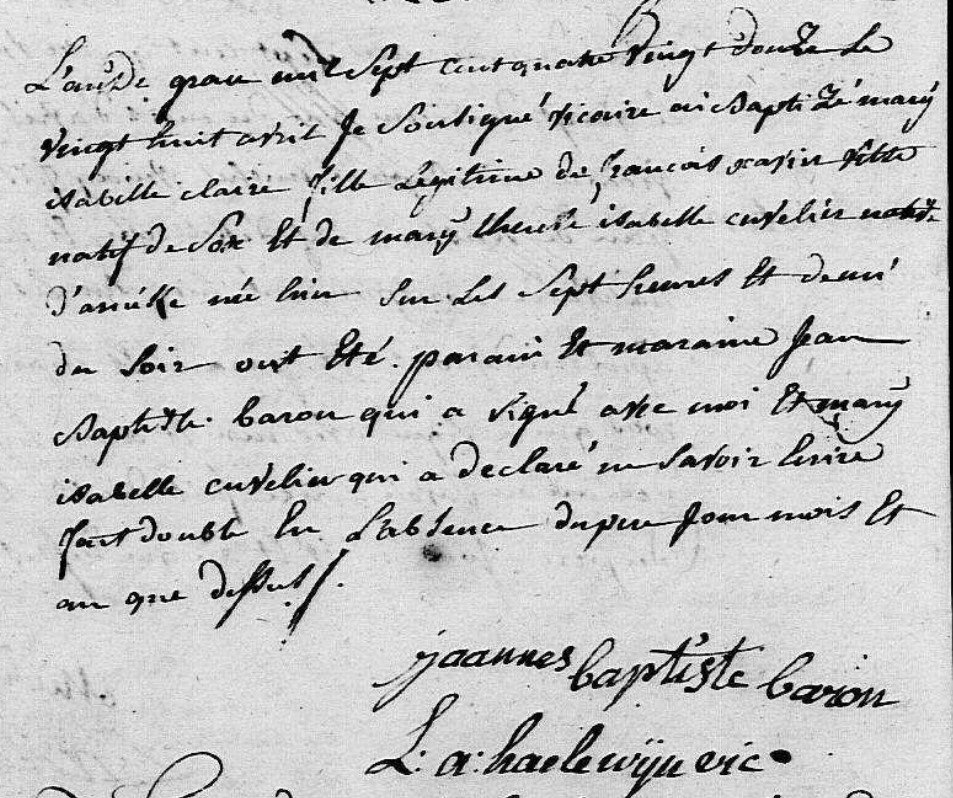 L'an de grace mil sept cent quatre vingt douze le
vingt huit avril Je soussigné vicaire ai Baptizé mary
isabelle claire fille Légitime de françois xavier
natif de Sox Et de mary therese isabelle cuvelier native
d'arnéke née hier sur Les sept heures Et demi
du soir ont Eté parain Et maraine Jean
Baptiste baron qui a signé avec moi Et mary
isabelle cuvelier qui a declaré ne savoir Ecrire
fait double En L'absence du pere Jour mois Et
an que dessus
joannes baptiste baron
L: a: haelewijn vic